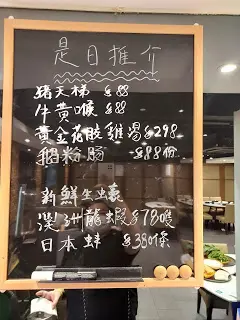 是日推介
豬天梯 $88
牛黃喉 $88
黃金花膠雞湯$298
鵝粉腸 $88份
新鮮生蠔
澳洲龍蝦$780隻
日本蚌 $380條